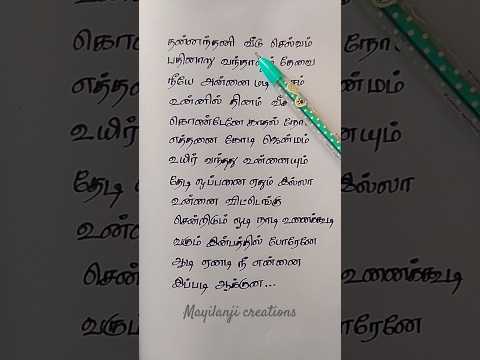 தன்னந்தனி வீடு செல்வம்
பதினாறு வந்தாலும் தேவை
நீயே அன்னை மடி
உன்னில் தினம்
கொண்டேனே காதல் நோ
எத்தனை கோடி ஜென்மம்
உயிர் வந்தது உன்னையும்
தேடி ஒப்பனை ஏதும் இல்லா
உன்னை விட்டெங்கு
சென்றிடும் ஓடி நாடி உனைக்கூடி
வரும் இன்பத்தில் போரேனே
ஆடி ஏனடி நீ என்னை
இப்படி ஆக்குன...
Mayilanji creations